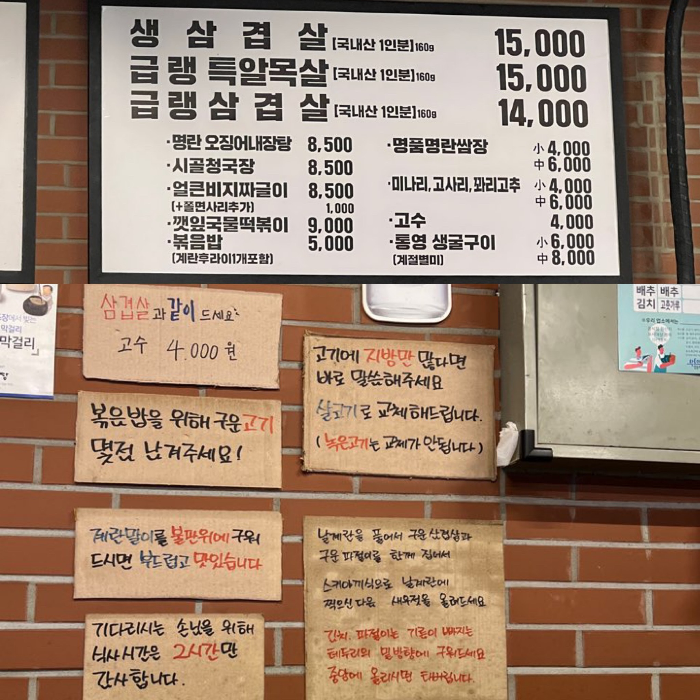 생 삼 겹 살 [국내산 1인분]160g 15,000
급랭 특알목살 [국내산 1인분]160g 15,000
급랭삼 겹 살 [국내산 1인분]160g 14,000
·명란 오징어내장탕 8,500
·시골청국장 8,500
·얼큰비지짜글이 8,500
(+쫄면사리추가) 1,000
·깻잎국물떡볶이 9,000
·볶음밥 5,000
(계란후라이1개포함)
·명품명란쌈장 小 4,000
中 6,000
·미나리,고사리,꽈리고추 小 4,000
中 6,000
·고수 4,000
·통영 생굴구이 小 6,000
(계절별미) 中 8,000
막걸리
막걸리」
삼겹살과 같이 드세요~
고수 4.000원
볶음밥을 위해 구운고기
몇점 남겨주세요!
계란말이를 불판위에 구워
드시면 부드럽고 맛있습니다
기다리시는 손님을 위해
식사시간은 2시간만
감사합니다.
고기에 지방만 많다면
바로 말씀해주세요
살고기로 교체해드립니다.
(녹은고기는 교체가 안됩니다)
날계란을 풀어서 구운삼겹살과
구운 파절이를 함께 집어서
스키야끼식으로 날계란에
찍으신다음 새우젓을 올려드세요
김치, 파절이는 기름이 빠지는
테두리의 밑방향에 구워드세요
중앙에 올리시면 타버립니다.
배추 배추
김치 고춧가루